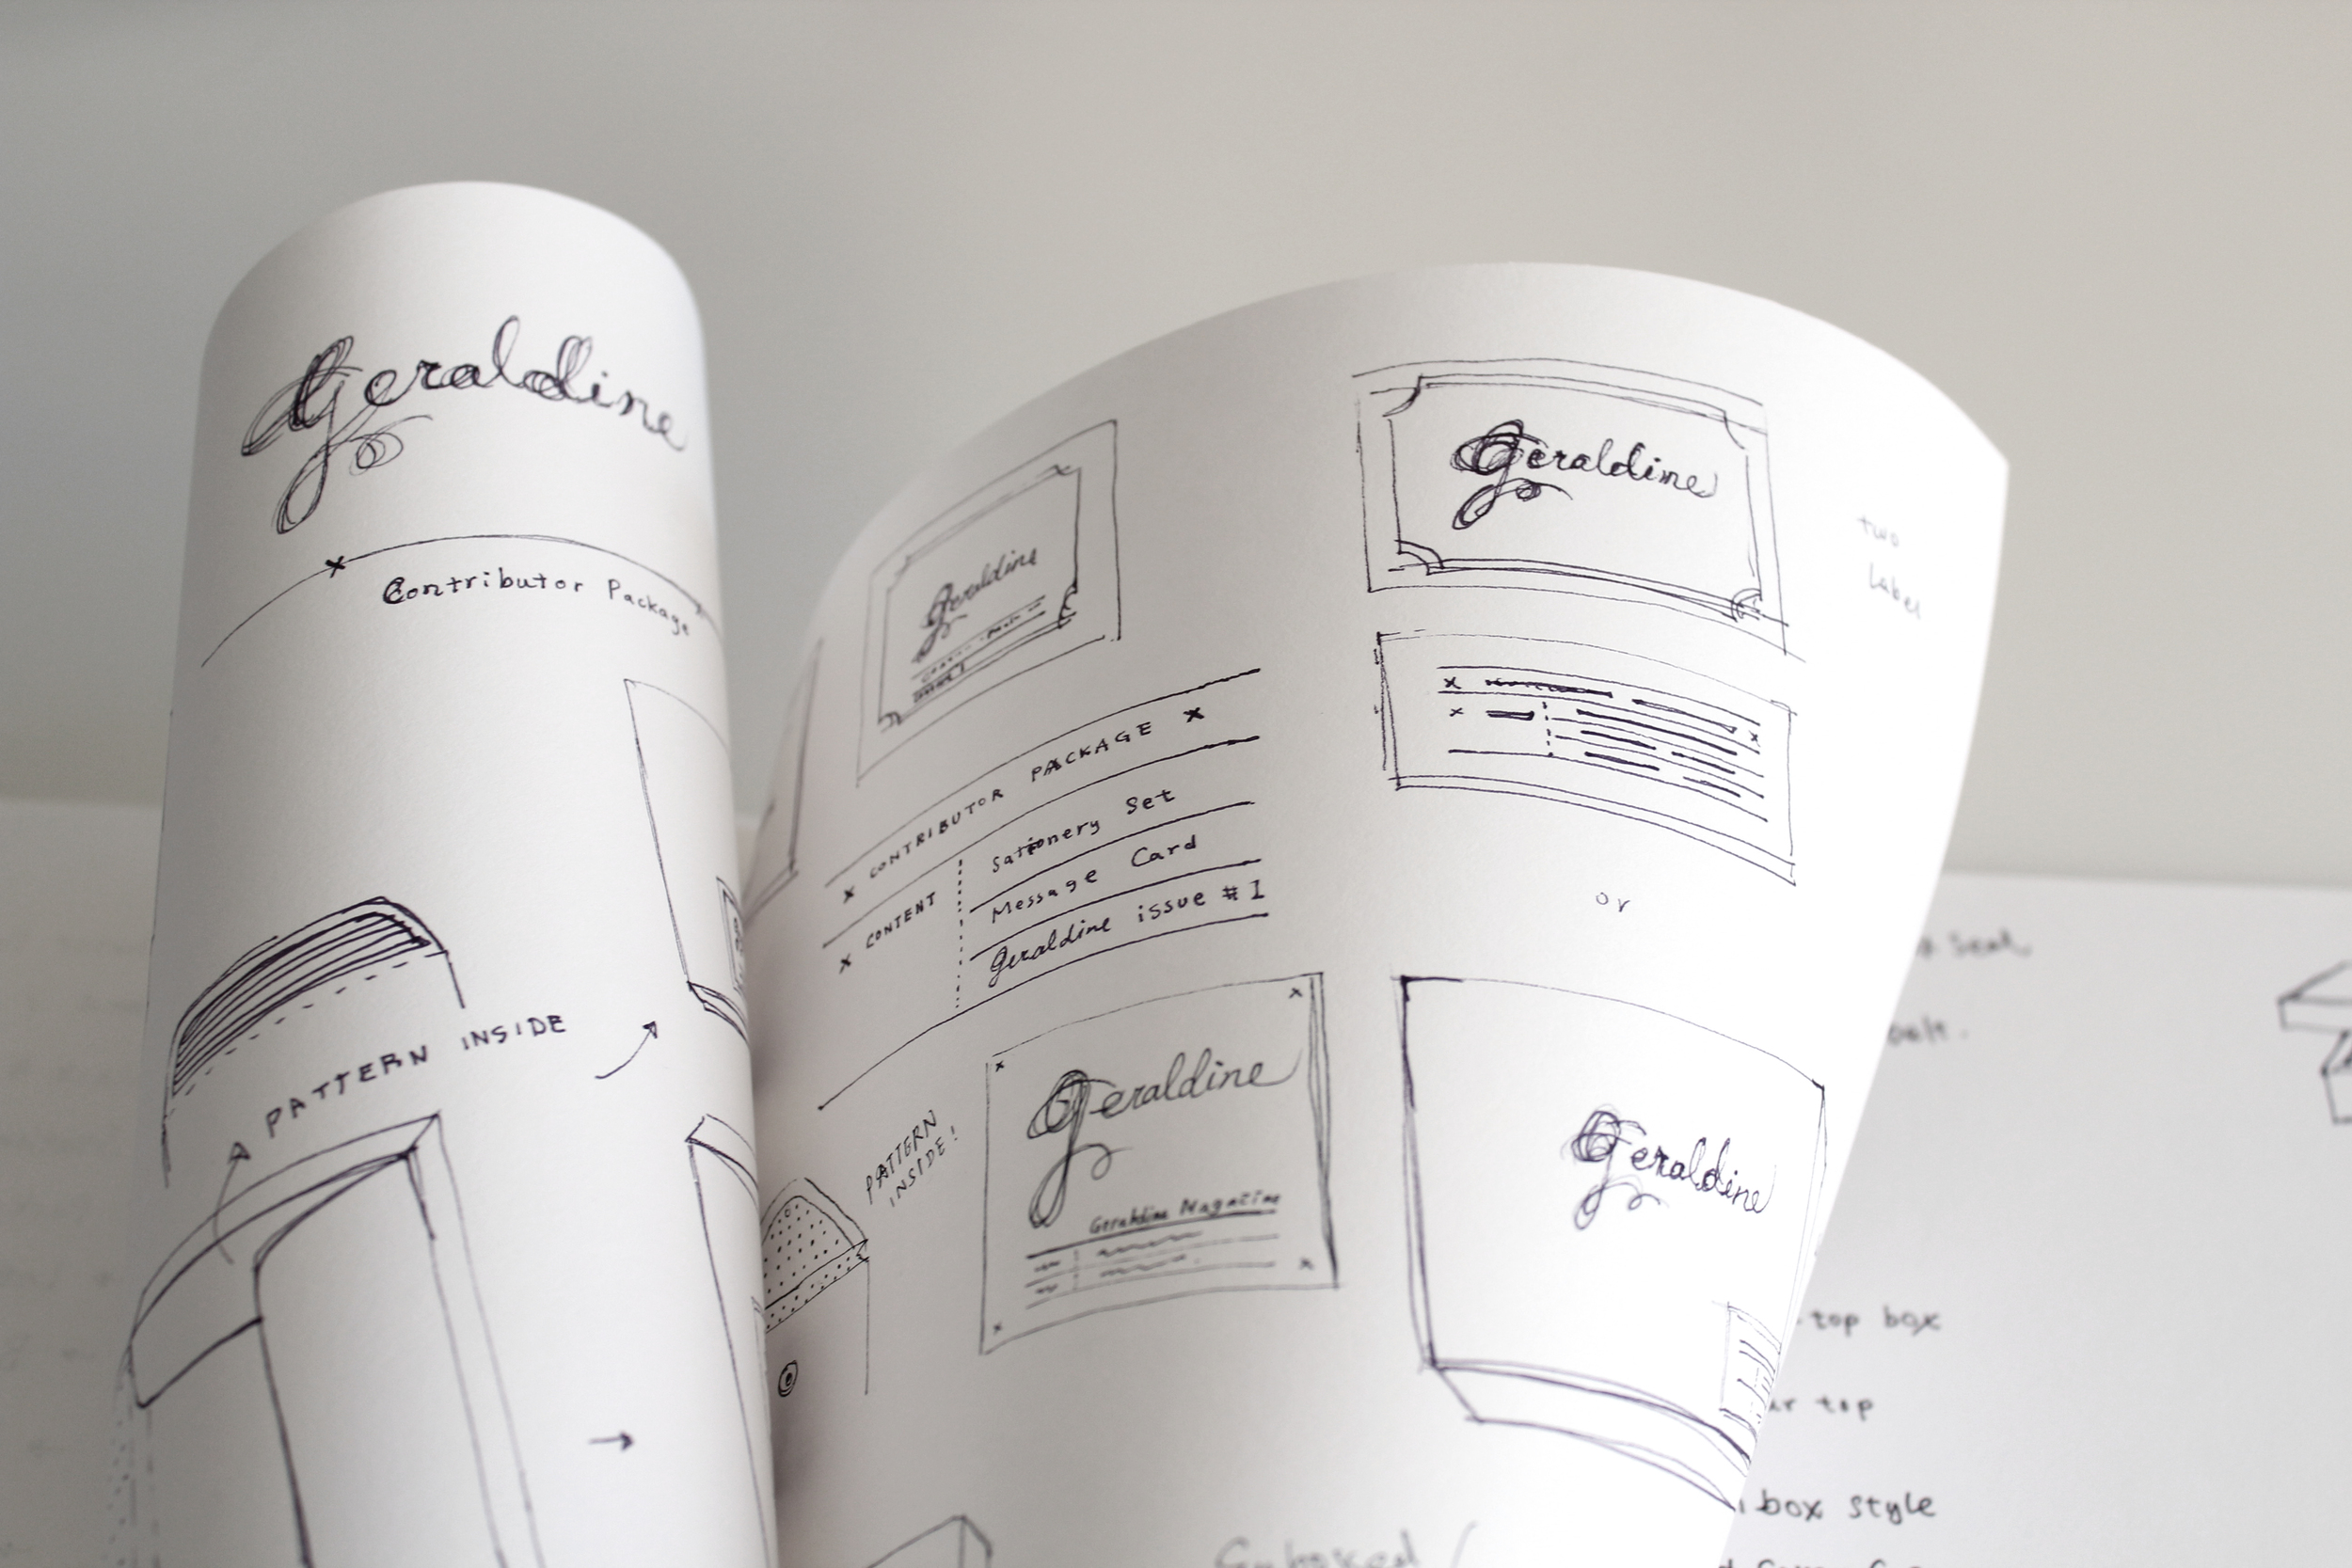 Geraldine
Contributor Package
PATTERN INSIDE
Geraldine
x CONTRIBUTOR PACKAGE x
x CONTENT
Sationery Set
Message Card
Geraldine issue #1
PATTERN
INSIDE!
Geraldine
Geraldine Magazine
Geraldine
two
Label
or
Geraldine
Seal
top box
top
box style